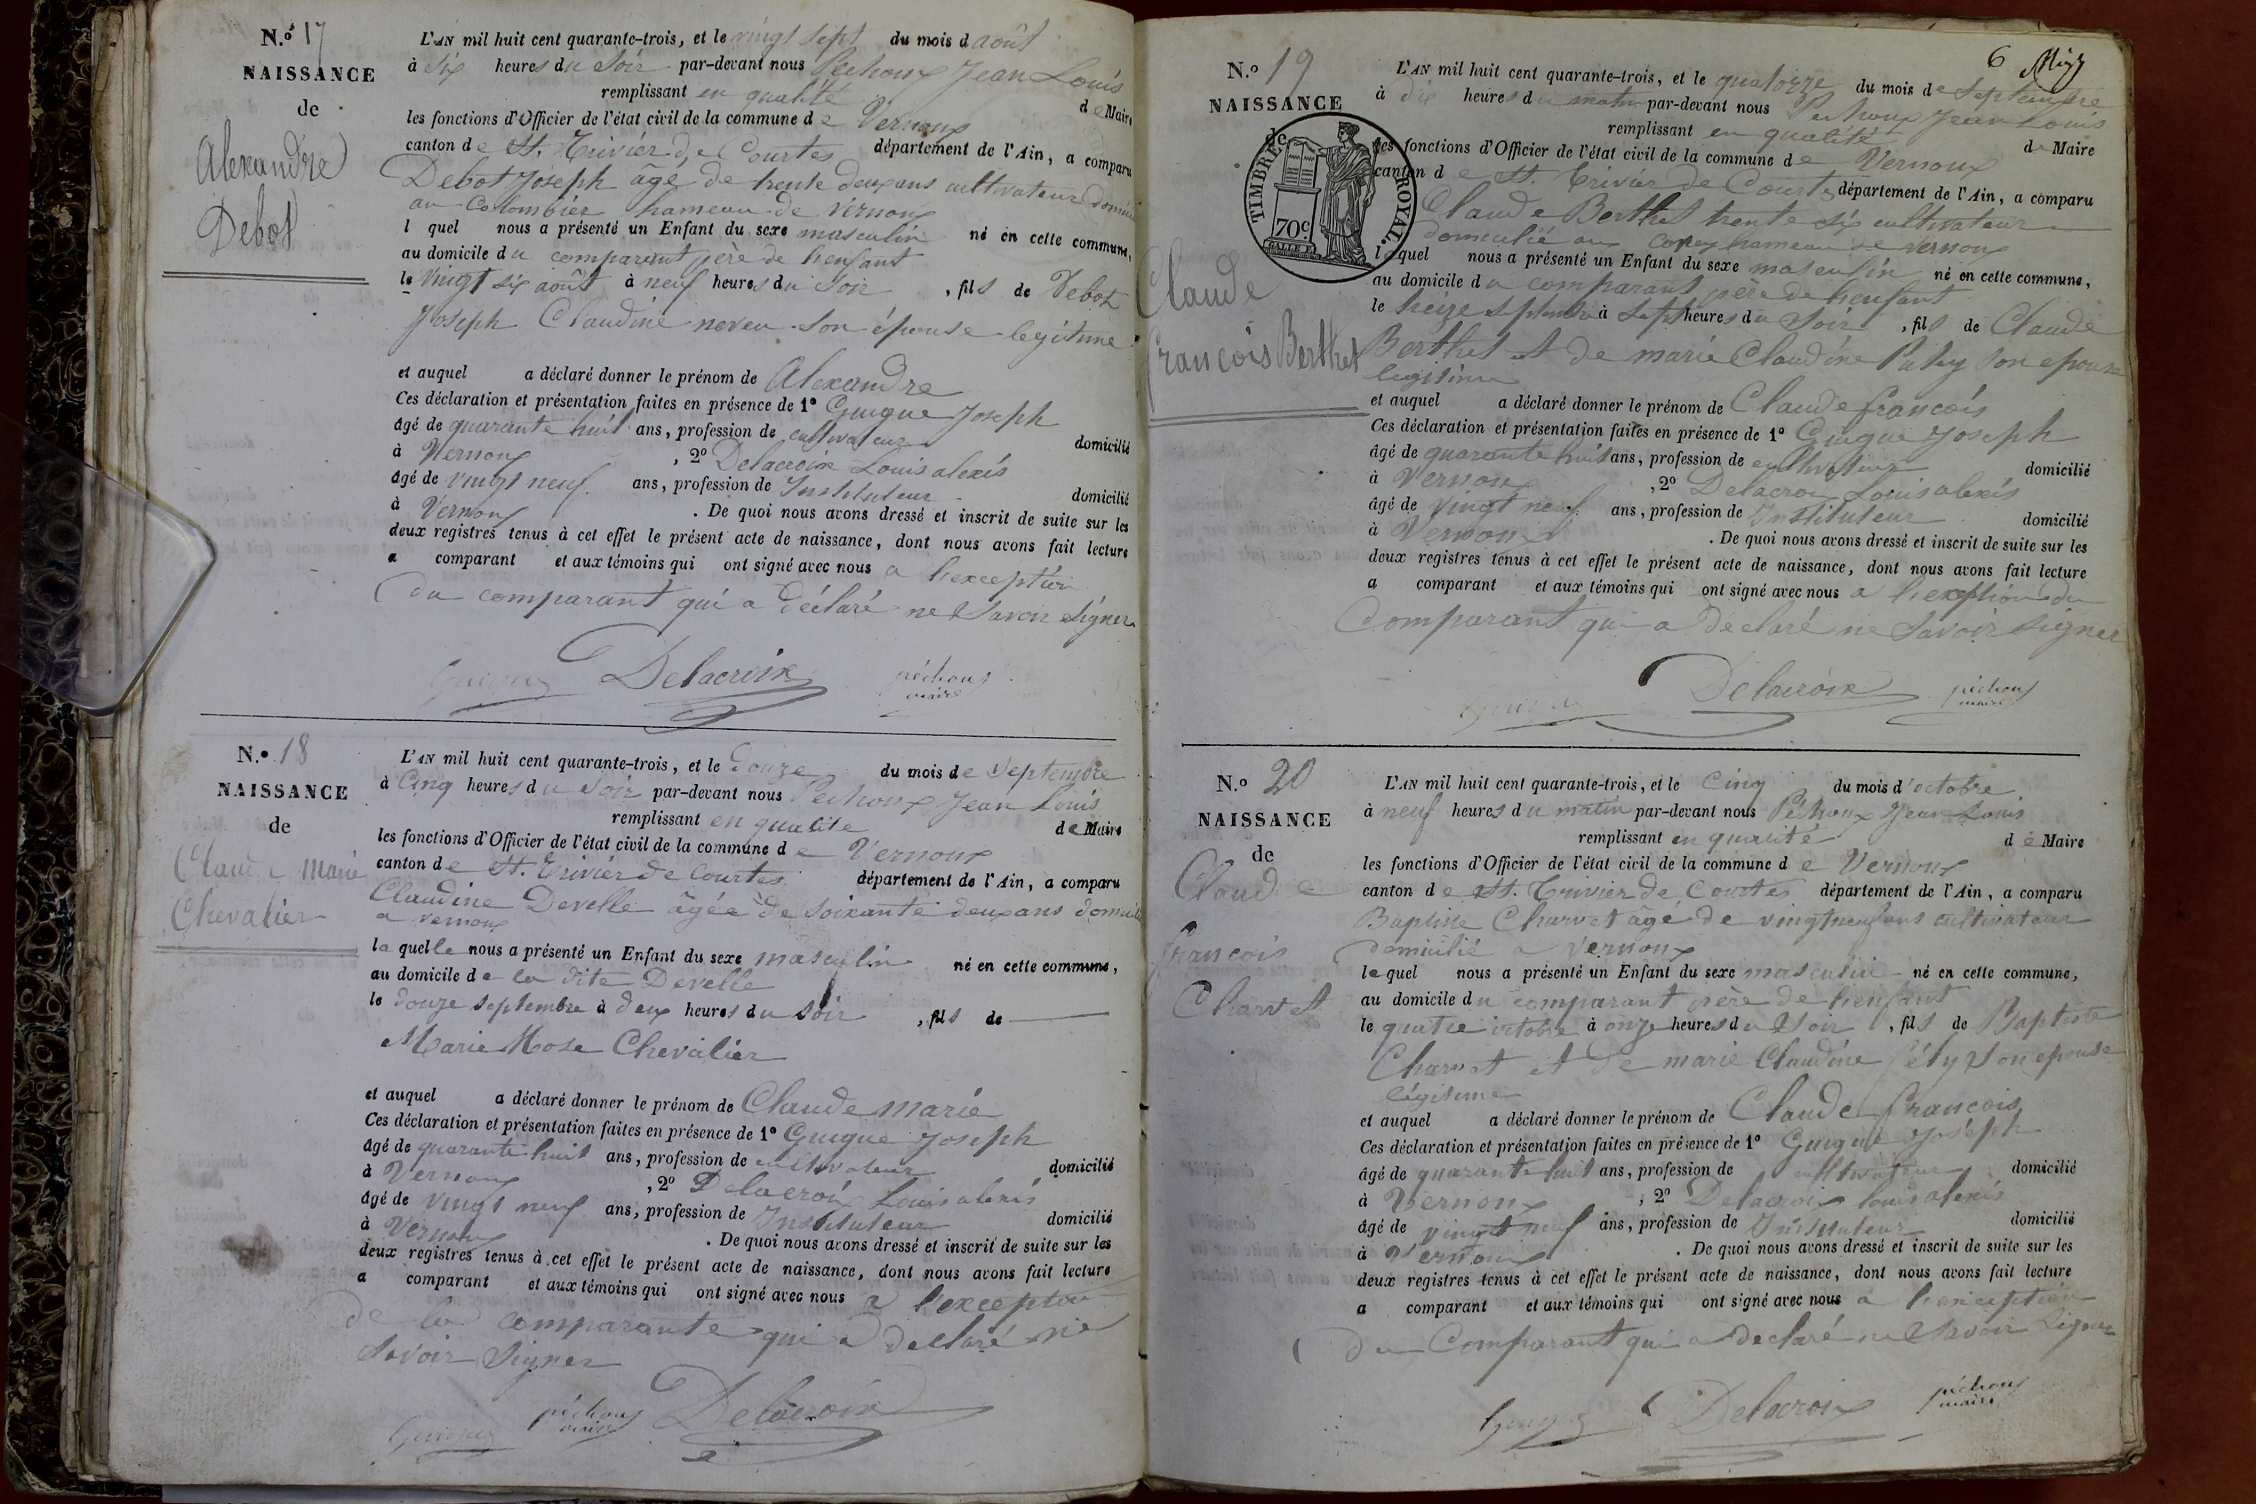 N.º 17
NAISSANCE
de
Alexandre
Debot
L'AN mil huit cent quarante-trois, et le vingt sept du mois d août
à six heures du soir par-devant nous Pechoux Jean Louis
remplissant en qualité de Maire
les fonctions d'Officier de l'état civil de la commune de Vernoux
canton de St. Trivier de Courtes département de l'Ain, a comparu
Debot Joseph âgé de trente deux ans cultivateur
au Colombier hameau de Vernoux
l quel nous a présenté un Enfant du sexe masculin né en cette commune,
au domicile du comparant père de l'enfant
le vingt six août à neuf heures du soir, fils de Debot
Joseph Claudine neveu son épouse legitime
et auquel a déclaré donner le prénom de Alexandre
Ces déclaration et présentation faites en présence de 1º Guigue Joseph
âgé de quarante huit ans, profession de cultivateur domicilié
à Vernoux, 2º Delacroix Louis alexis
âgé de vingt neuf ans, profession de Instituteur domicilié
à Vernoux. De quoi nous avons dressé et inscrit de suite sur les
deux registres tenus à cet effet le présent acte de naissance, dont nous avons fait lecture
a comparant et aux témoins qui ont signé avec nous a l'exception
du comparant qui a déclaré ne savoir signer
Guigue Delacroix péchoux
maire
N.º 18
NAISSANCE
de
Claude Marie
Chevalier
L'AN mil huit cent quarante-trois, et le Douze du mois de Septembre
à Cinq heures du soir par-devant nous Pechoux Jean Louis
remplissant en qualité de Maire
les fonctions d'Officier de l'état civil de la commune de Vernoux
canton de St. Trivier de Courtes département de l'Ain, a comparu
Claudine Develle âgée de soixante deux ans
a vernoux
la quelle nous a présenté un Enfant du sexe masculin né en cette commune,
au domicile de la dite Develle
le douze septembre à deux heures du soir, fils de
Marie Rose Chevalier
et auquel a déclaré donner le prénom de Claude marie
Ces déclaration et présentation faites en présence de 1º Guigue Joseph
âgé de quarante huit ans, profession de cultivateur domicilié
à Vernoux, 2º Delacroix Louis alexis
âgé de vingt neuf ans, profession de Instituteur domicilié
à Vernoux. De quoi nous avons dressé et inscrit de suite sur les
deux registres tenus à cet effet le présent acte de naissance, dont nous avons fait lecture
a comparant et aux témoins qui ont signé avec nous a l'exception
de la comparante qui a déclaré ne
savoir signer
Guigue péchoux Delacroix
maire
6
N.º 19
NAISSANCE
de
TIMBRE ROYAL.
70c.
Claude
francois Berthet
L'AN mil huit cent quarante-trois, et le quatorze du mois de septembre
à dix heures du matin par-devant nous Pechoux Jean Louis
remplissant en qualité de Maire
les fonctions d'Officier de l'état civil de la commune de Vernoux
canton de St. Trivier de Courtes département de l'Ain, a comparu
Claude Berthet trente six cultivateur
domicilié au hameau de vernoux
lequel nous a présenté un Enfant du sexe masculin né en cette commune,
au domicile du comparant père de l'enfant
le treize septembre à sept heures du soir, fils de Claude
Berthet et de marie Claudine son epouse
legitime
et auquel a déclaré donner le prénom de Claude francois
Ces déclaration et présentation faites en présence de 1º Guigue Joseph
âgé de quarante huit ans, profession de cultivateur domicilié
à Vernoux, 2º Delacroix Louis alexis
âgé de vingt neuf ans, profession de Instituteur domicilié
à Vernoux. De quoi nous avons dressé et inscrit de suite sur les
deux registres tenus à cet effet le présent acte de naissance, dont nous avons fait lecture
a comparant et aux témoins qui ont signé avec nous a l'exception du
Comparant qui a déclaré ne savoir signer
Guigue Delacroix péchoux
maire
N.º 20
NAISSANCE
de
Claude
francois
Charvet
L'AN mil huit cent quarante-trois, et le cinq du mois d'octobre
à neuf heures du matin par-devant nous Péchoux Jean Louis
remplissant en qualité de Maire
les fonctions d'Officier de l'état civil de la commune de Vernoux
canton de St. Trivier de Courtes département de l'Ain, a comparu
Baptiste Charvet agé de vingt neuf ans cultivateur
domicilié a Vernoux
lequel nous a présenté un Enfant du sexe masculin né en cette commune,
au domicile du comparant père de l'enfant
le quatre octobre à onze heures du soir, fils de Baptiste
Charvet et de marie Claudine son epouse
légitime
et auquel a déclaré donner le prénom de Claude francois
Ces déclaration et présentation faites en présence de 1º Guigue Joseph
âgé de quarante huit ans, profession de cultivateur domicilié
à Vernoux, 2º Delacroix louis alexis
âgé de vingt neuf ans, profession de Instituteur domicilié
à Vernoux. De quoi nous avons dressé et inscrit de suite sur les
deux registres tenus à cet effet le présent acte de naissance, dont nous avons fait lecture
a comparant et aux témoins qui ont signé avec nous a l'exception
du Comparant qui a declaré ne savoir signer
Guigue Delacroix péchoux
maire